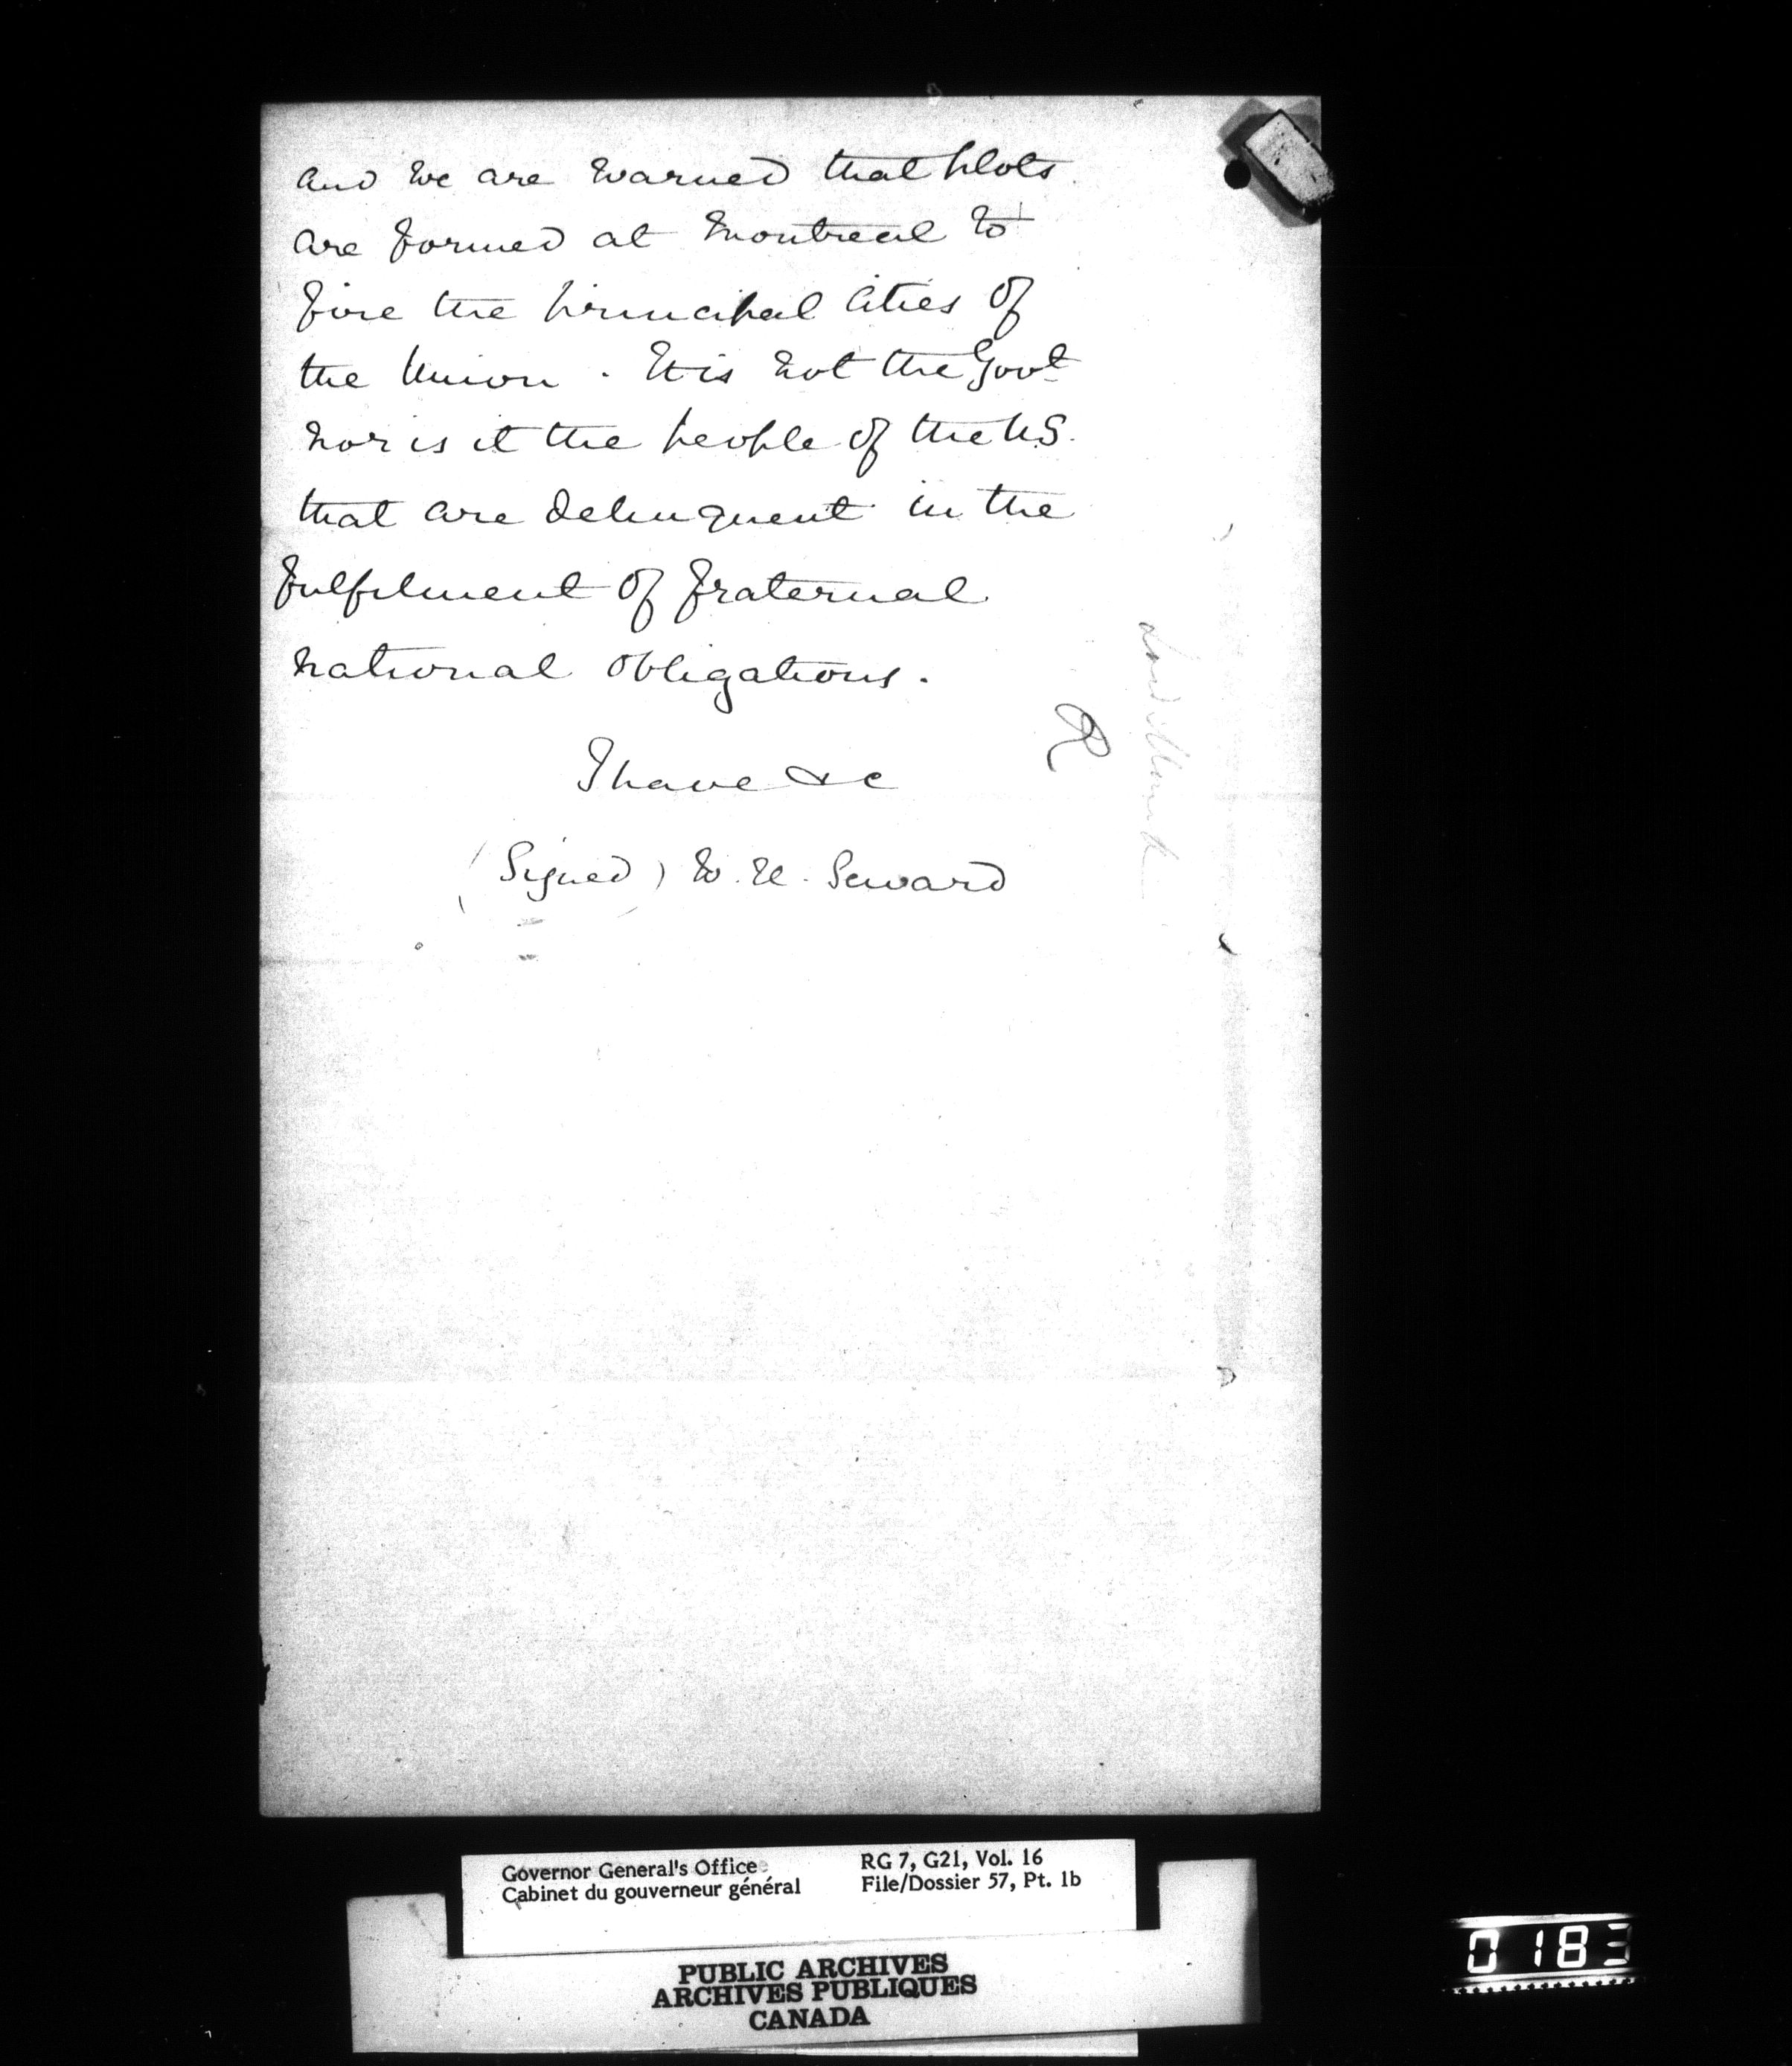 and we are warned that plots
are formed at Montreal to
fire the principal cities of
the Union. It is not the Govt
nor is it the people of the U.S.
that are delinquent in the
fulfilment of fraternal
national obligations.
I have &c
(Signed) W. H. Seward
Governor General's Office
Cabinet du gouverneur général
RG 7, G21, Vol. 16
File/Dossier 57, Pt. 1b
PUBLIC ARCHIVES
ARCHIVES PUBLIQUES
CANADA
0183